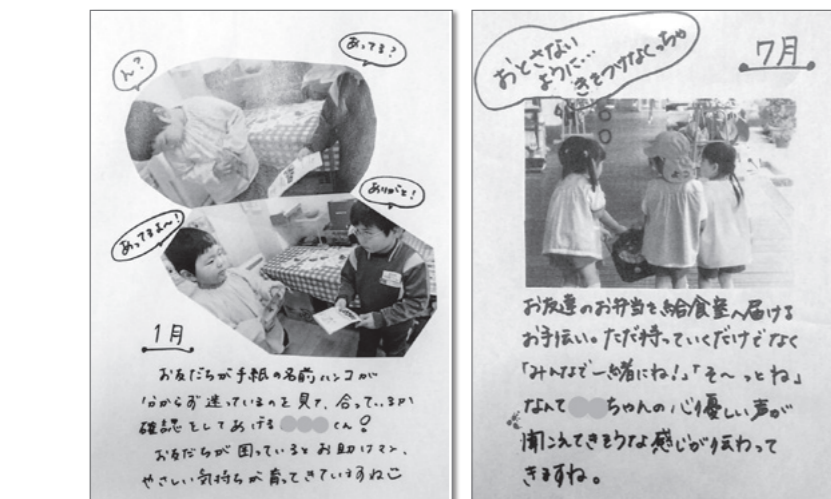 ん?
あってる?
あってるよ〜!
ありがと!
1月
お友だちが手紙の名前ハンコが
分からず迷っているのを見て、合っているか
確認をしてあげる●●●くん!
お友だちが困っているとお助けマン、
やさしい気持ちが育ってきていますね
おとさない
ように…
きをつけなくっちゃ
7月
お友達のお弁当を給食室へ届ける
お手伝い。ただ持っていくだけでなく
「みんなで一緒にね!」「そ〜っとね」
なんて●●ちゃんの心優しい声が
聞こえてきそうな感じが伝わって
きますね。